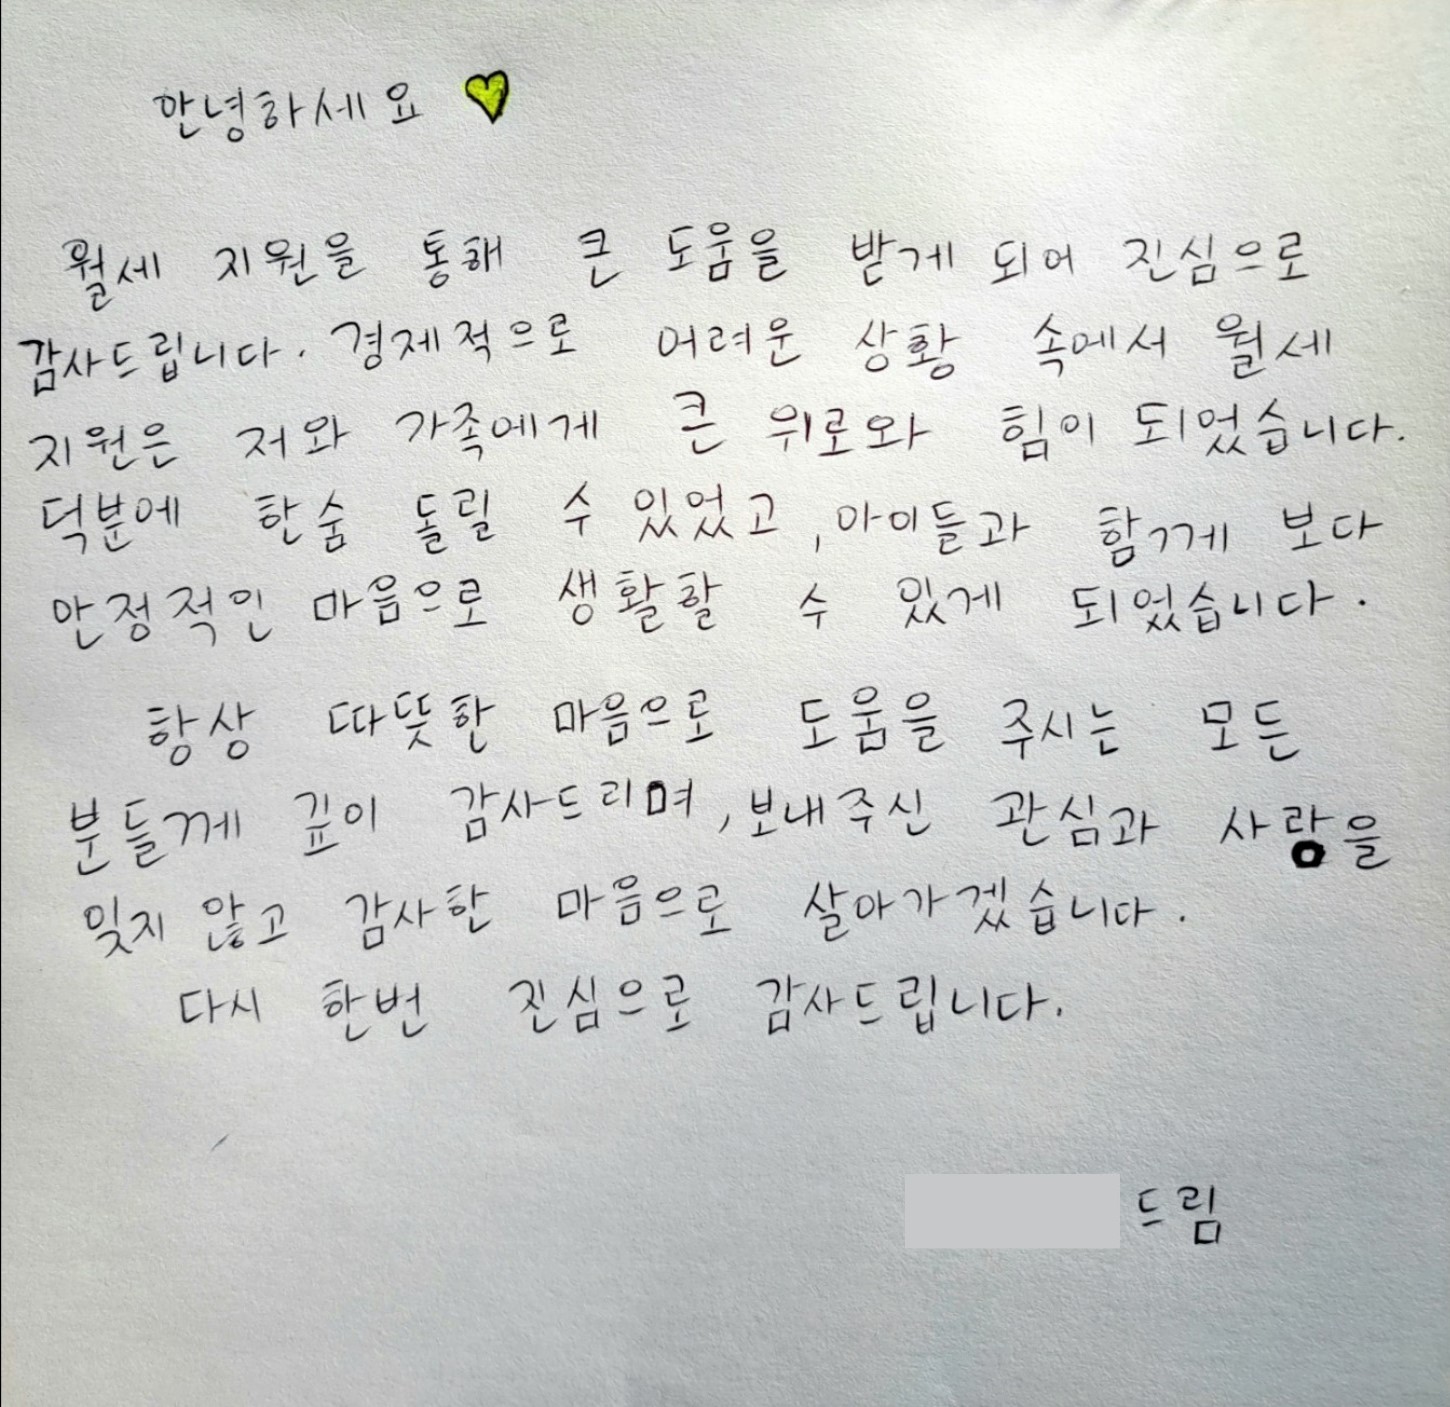 안녕하세요 💛
월세 지원을 통해 큰 도움을 받게 되어 진심으로
감사드립니다. 경제적으로 어려운 상황 속에서 월세
지원은 저와 가족에게 큰 위로와 힘이 되었습니다.
덕분에 한숨 돌릴 수 있었고, 아이들과 함께 보다
안정적인 마음으로 생활할 수 있게 되었습니다.
항상 따뜻한 마음으로 도움을 주시는 모든
분들께 깊이 감사드리며, 보내주신 관심과 사랑을
잊지 않고 감사한 마음으로 살아가겠습니다.
다시 한번 진심으로 감사드립니다.
드림